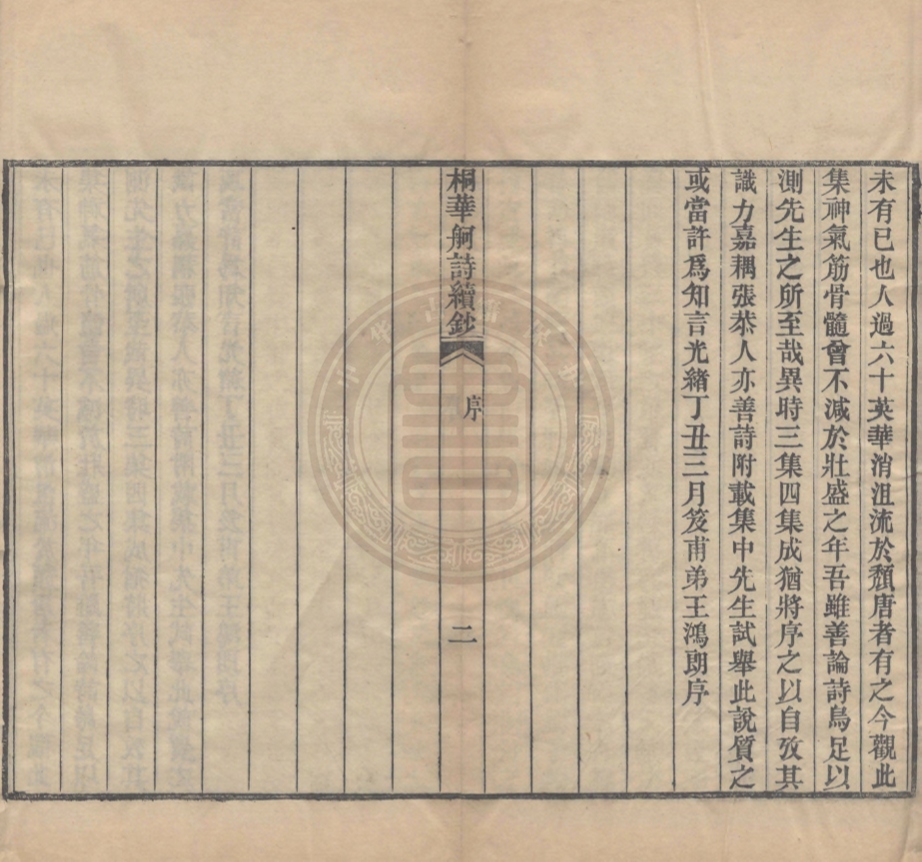 未有已也人過六十英華消沮流於頹唐者有之今觀此
集神氣筋骨髓曾不減於壯盛之年吾雖善論詩烏足以
測先生之所至哉異時三集四集成猶將序之以自攷其
識力嘉耦張恭人亦善詩附載集中先生試舉此說質之
或當許爲知言光緒丁丑三月笈甫弟王鴻朗序
桐華舸詩續鈔
序
二